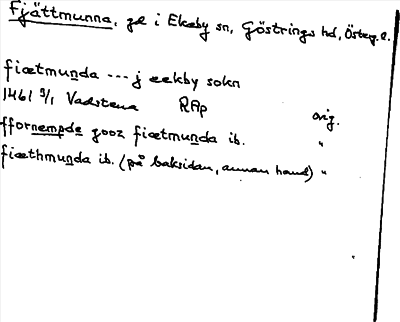 Fjättmunna, gd i Ekeby sn, Göstrings hd, Österg. l.
fiætmunda --- j eekby sokn
1461 5/1 Vadstena RAp orig.
ffornempde gooz fiætmunda ib. "
fiæthmunda ib. (på baksidan, annan hand) "